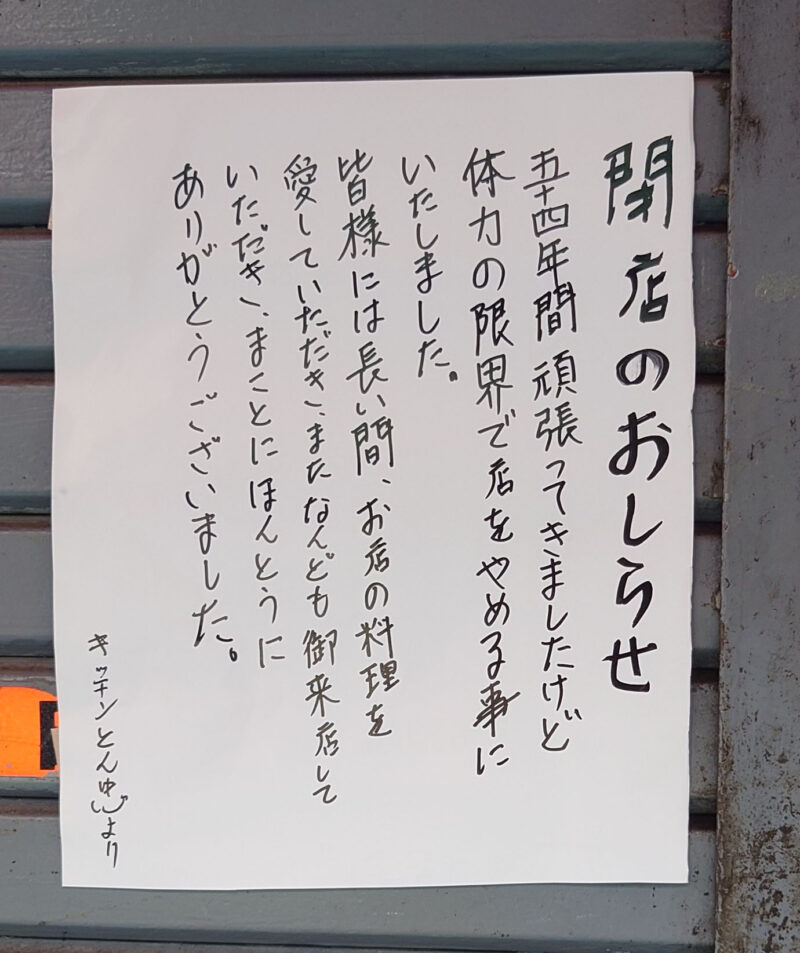 閉店のおしらせ
五十四年間頑張ってきましたけど
体力の限界で店をやめる事に
いたしました。
皆様には長い間、お店の料理を
愛していただき、またなんども御来店して
いただき、まことにほんとうに
ありがとうございました。
キッチンとんゆじより